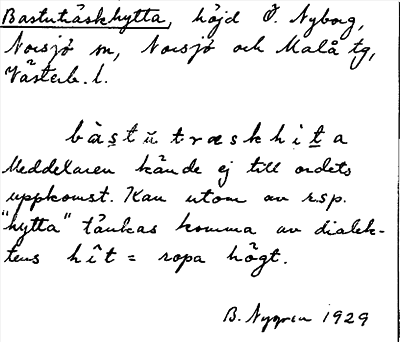 Bastuträskhytta, höjd Ö. Nyborg,
Norsjö sn, Norsjö och Malå tg,
Västerb. l.
bàs̲tŭtræskhit̲a
Meddelaren kände ej till ordets
uppkomst. Kan utom av r.s.p.
"hytta" tänkas komma av dialek-
tens hît = ropa högt.
B. Nygren 1929